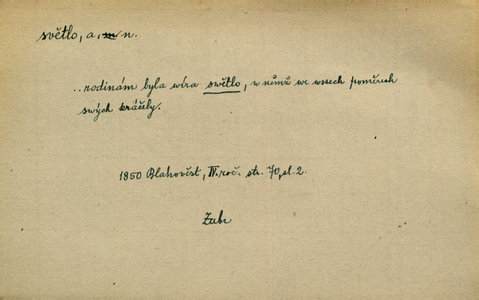 světlo, a, m n.
..rodinám byla wíra swětlo, w němž we wssech poměrech
swých kráčely.
1850 Blahověst, IV. roč. str. 70, sl. 2.
Zubr